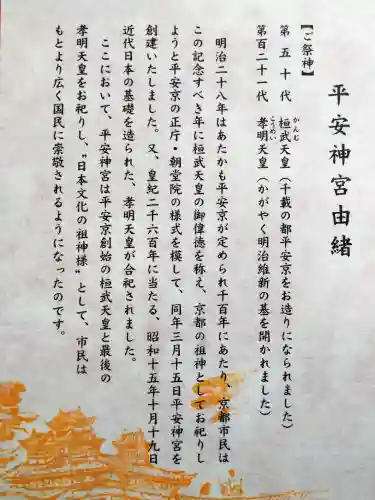 平安神宮由緒
【ご祭神】
第五十代 桓武天皇（千載の都平安京をお造りになられました）
かんむ
第百二十一代 孝明天皇（かがやく明治維新の基を開かれました）
こうめい
明治二十八年はあたかも平安京が定められ千百年にあたり、京都市民は
この記念すべき年に桓武天皇の御偉徳を称え、京都の祖神としてお祀りし
ようと平安京の正庁・朝堂院の様式を模して、同年三月十五日平安神宮を
創建いたしました。又、皇紀二千六百年に当たる、昭和十五年十月十九日
近代日本の基礎を造られた、孝明天皇が合祀されました。
ここにおいて、平安神宮は平安京創始の桓武天皇と最後の
孝明天皇をお祀りし、〝日本文化の祖神様〟として、市民は
もとより広く国民に崇敬されるようになったのです。